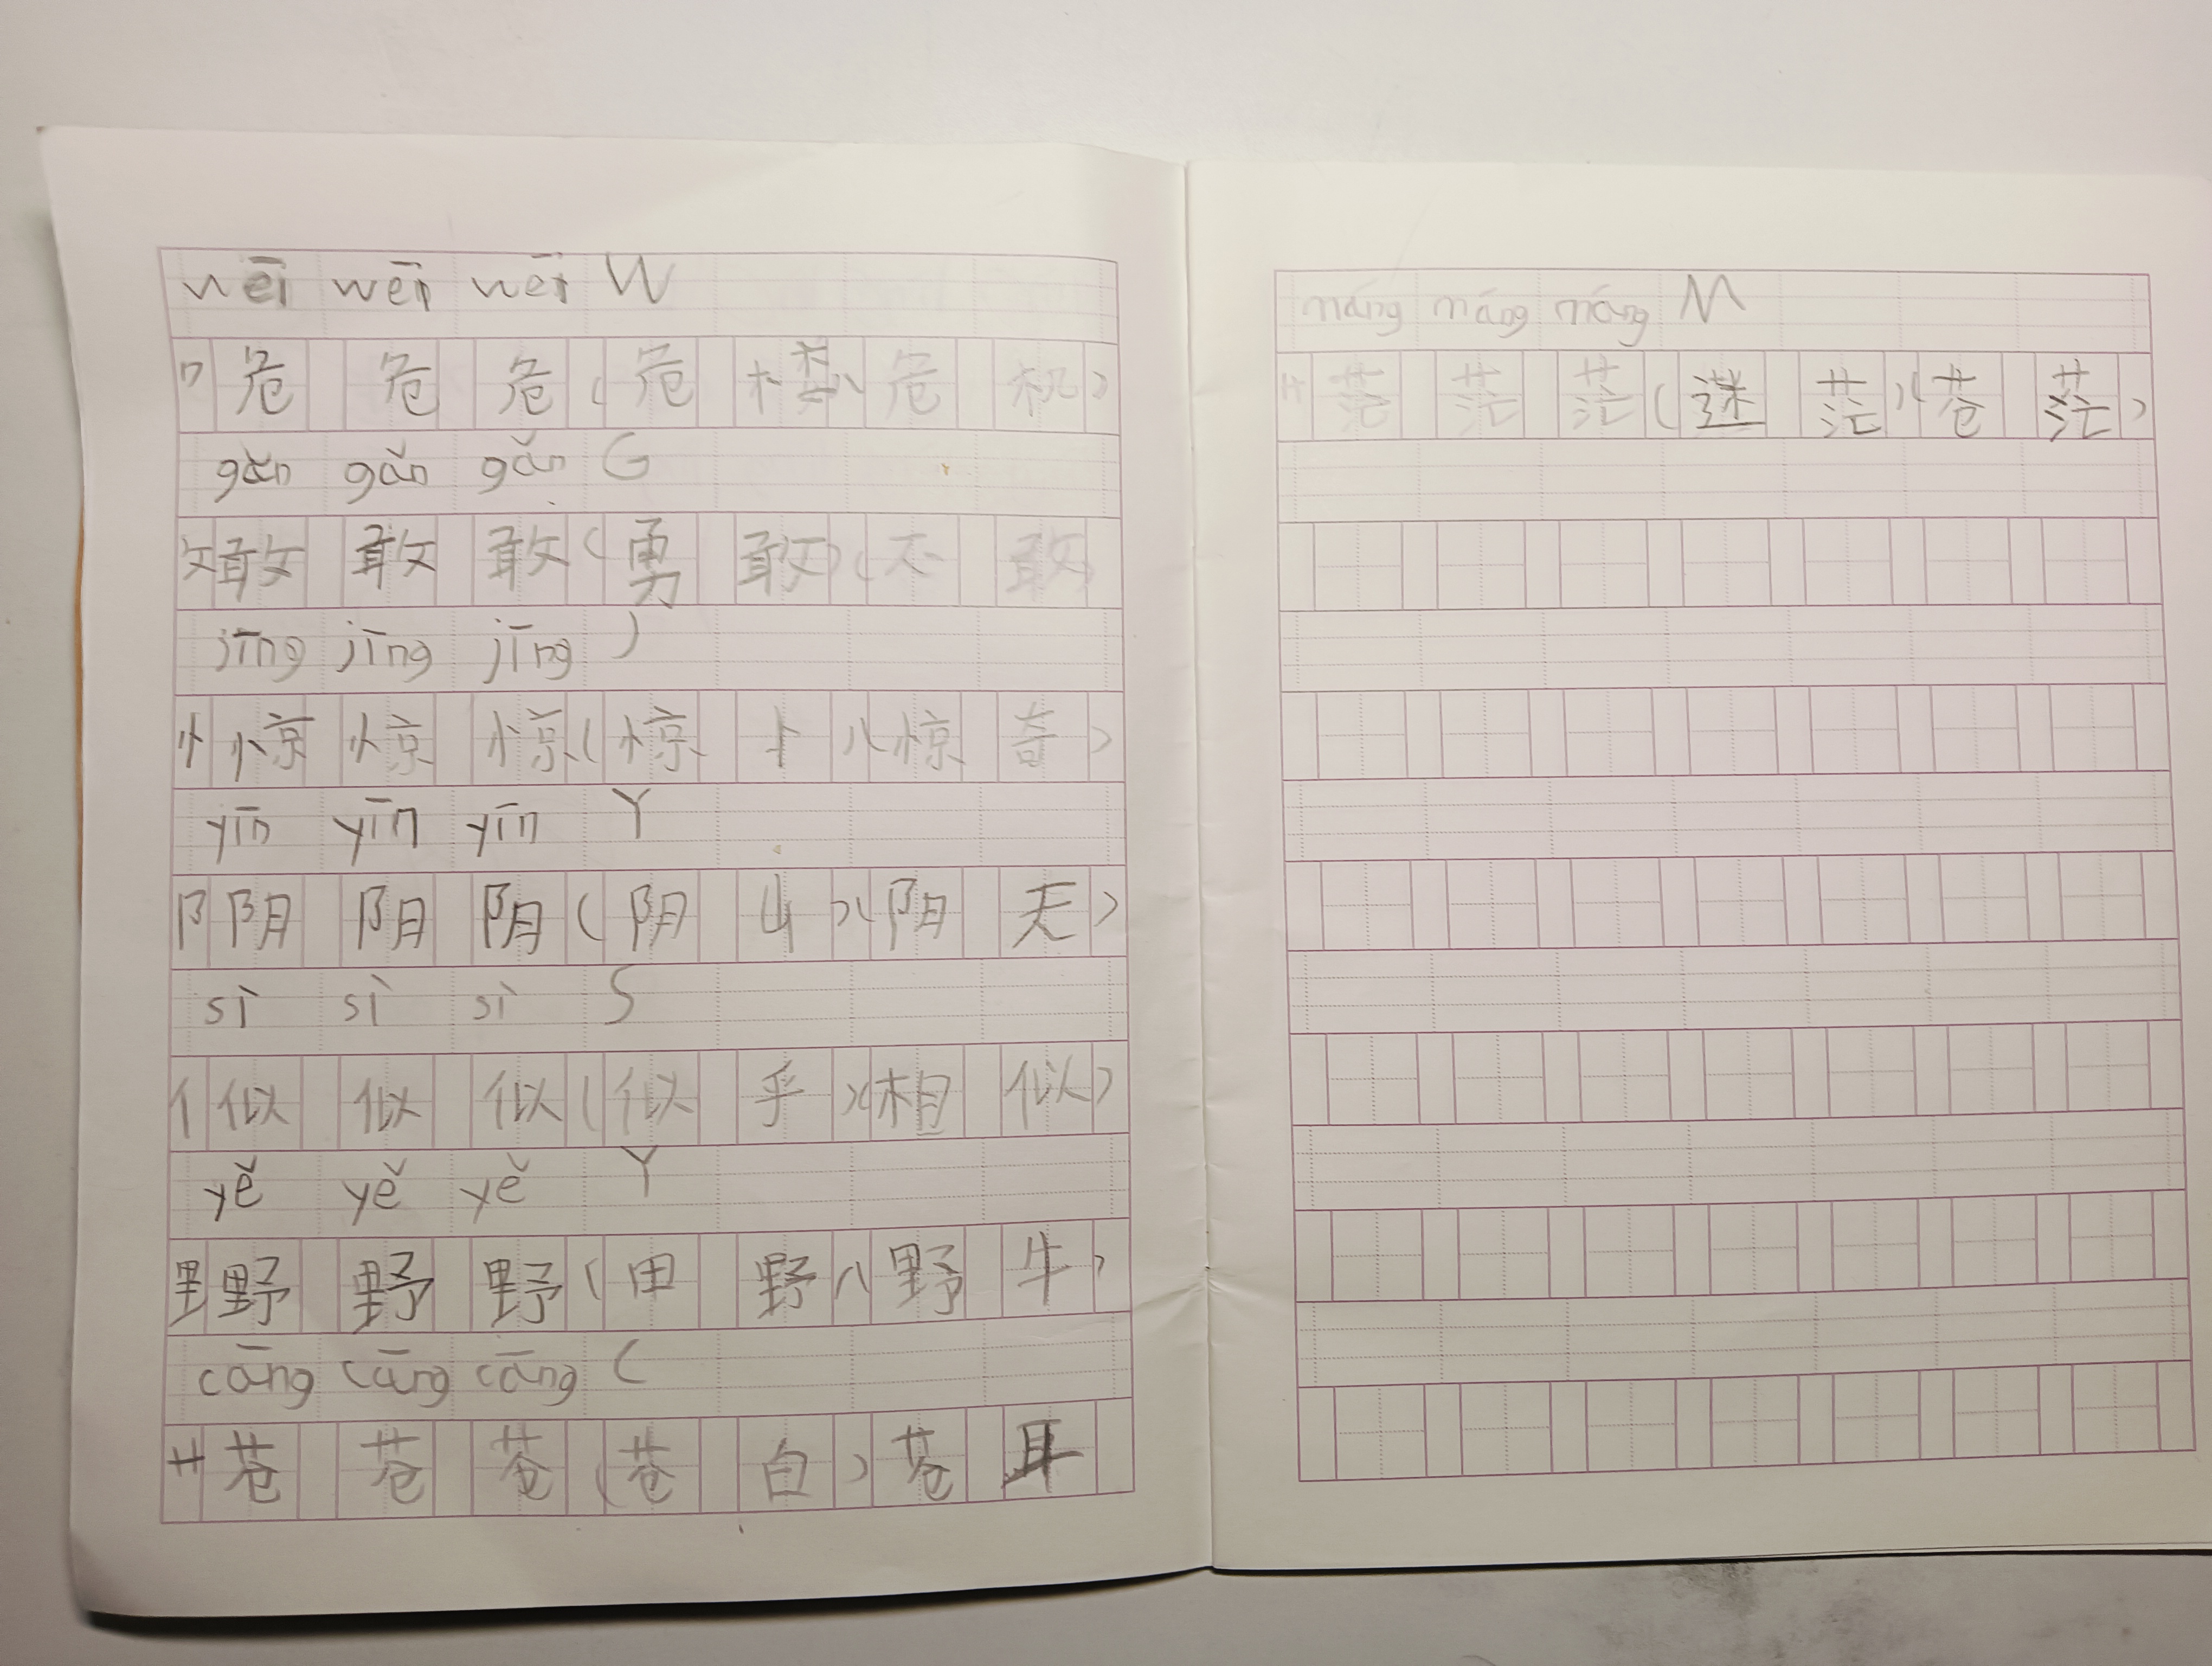 wēi wēi wēi W
⺈ 危 危 危 ( 危 楼 ) ( 危 机 )
gǎn gǎn gǎn G
攵 敢 敢 敢 ( 勇 敢 ) ( 不 敢 )
jīng jīng jīng J
忄 惊 惊 惊 ( 惊 ) ( 惊 奇 )
yīn yīn yīn Y
阝 阴 阴 阴 ( 阴 山 ) ( 阴 天 )
sì sì sì S
亻 似 似 似 ( 似 乎 ) ( 相 似 )
yě yě yě Y
里 野 野 野 ( 田 野 ) ( 野 牛 )
cāng cāng cāng C
艹 苍 苍 苍 ( 苍 白 ) 苍 耳
máng máng máng M
艹 茫 茫 茫 ( 迷 茫 ) ( 苍 茫 )